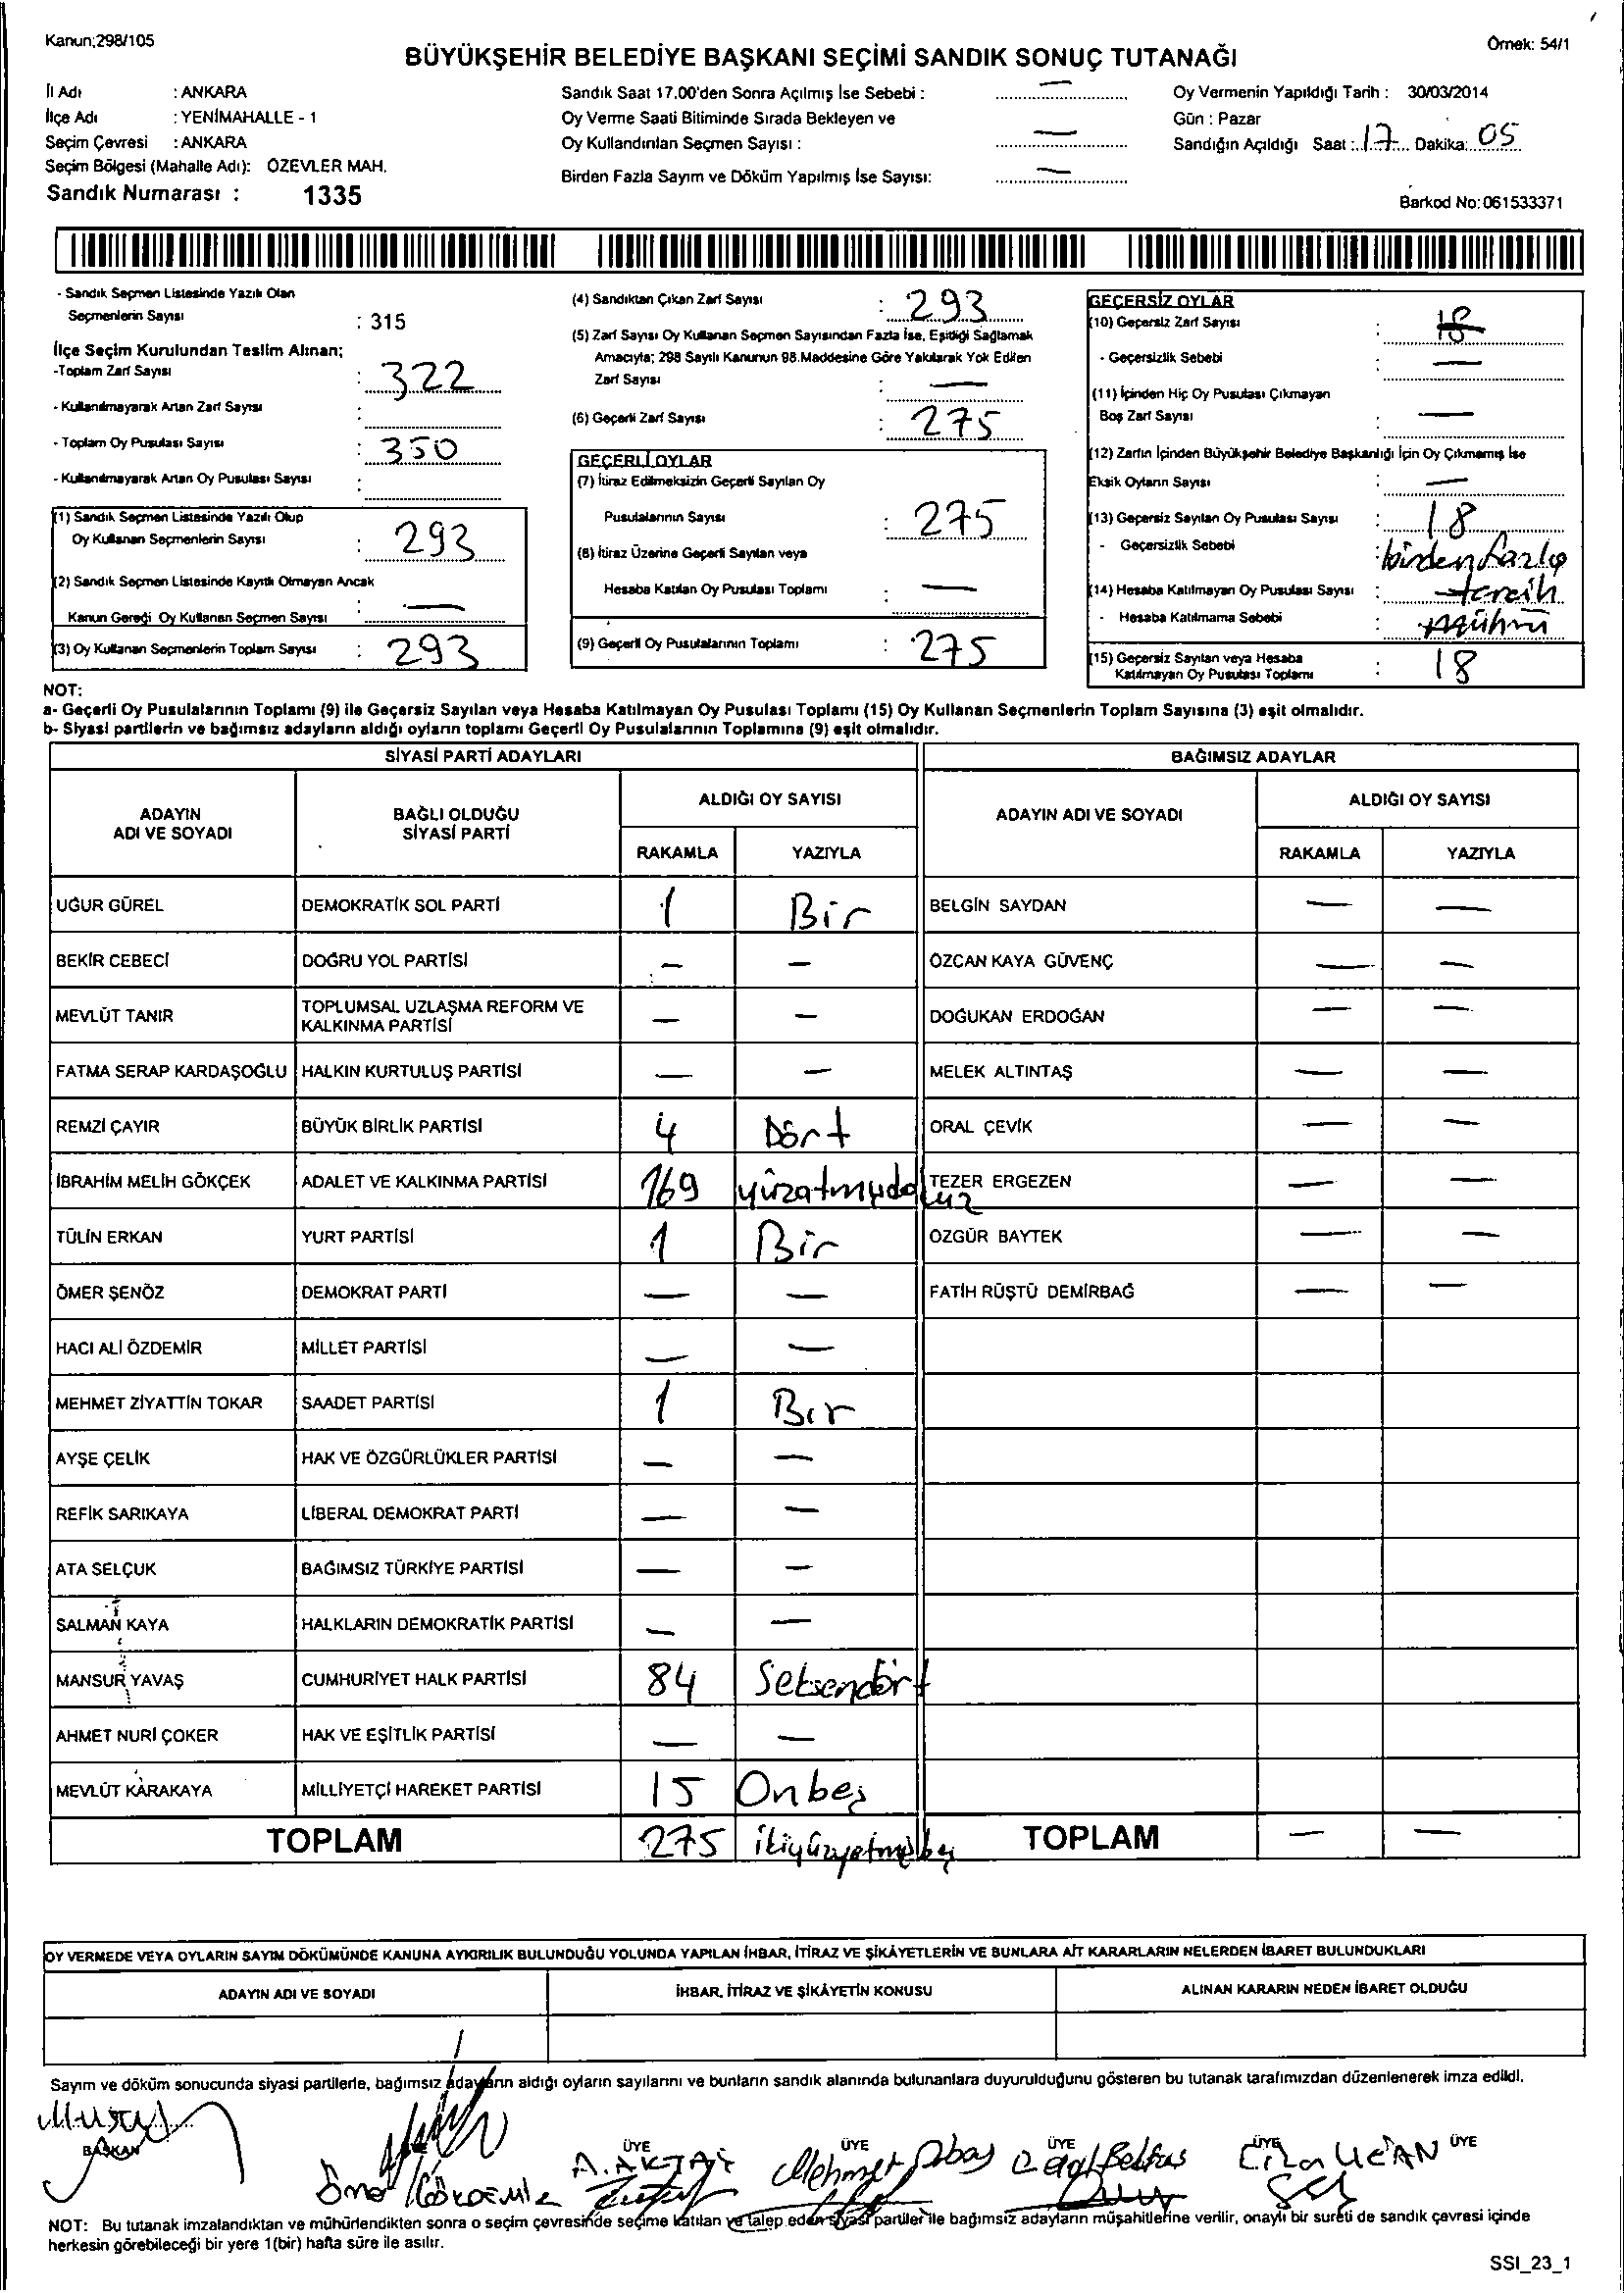 Kanun;298/105
Örnek: 54/1
BÜYÜKŞEHİR BELEDİYE BAŞKANI SEÇİMİ SANDIK SONUÇ TUTANAĞI
İl Adı : ANKARA
İlçe Adı : YENİMAHALLE - 1
Seçim Çevresi : ANKARA
Seçim Bölgesi (Mahalle Adı): ÖZEVLER MAH.
Sandık Numarası : 1335
Sandık Saat 17.00'den Sonra Açılmış İse Sebebi : —
Oy Verme Saati Bitiminde Sırada Bekleyen ve
Oy Kullandırılan Seçmen Sayısı : —
Birden Fazla Sayım ve Döküm Yapılmış İse Sayısı: —
Oy Vermenin Yapıldığı Tarih : 30/03/2014
Gün : Pazar
Sandığın Açıldığı Saat : 17 Dakika: 05
Barkod No:061533371
- Sandık Seçmen Listesinde Yazılı Olan
Seçmenlerin Sayısı : 315
İlçe Seçim Kurulundan Teslim Alınan;
-Toplam Zarf Sayısı : 322
- Kullanılmayarak Artan Zarf Sayısı :
- Toplam Oy Pusulası Sayısı : 350
- Kullanılmayarak Artan Oy Pusulası Sayısı :
(1) Sandık Seçmen Listesinde Yazılı Olup
Oy Kullanan Seçmenlerin Sayısı : 293
(2) Sandık Seçmen Listesinde Kayıtlı Olmayan Ancak
Kanun Gereği Oy Kullanan Seçmen Sayısı : —
(3) Oy Kullanan Seçmenlerin Toplam Sayısı : 293
(4) Sandıktan Çıkan Zarf Sayısı : 293
(5) Zarf Sayısı Oy Kullanan Seçmen Sayısından Fazla İse, Eşitliği Sağlamak
Amacıyla; 298 Sayılı Kanunun 98.Maddesine Göre Yakılarak Yok Edilen
Zarf Sayısı : —
(6) Geçerli Zarf Sayısı : 275
GEÇERLİ OYLAR
(7) İtiraz Edilmeksizin Geçerli Sayılan Oy
Pusulalarının Sayısı : 275
(8) İtiraz Üzerine Geçerli Sayılan veya
Hesaba Katılan Oy Pusulası Toplamı : —
(9) Geçerli Oy Pusulalarının Toplamı : 275
GEÇERSİZ OYLAR
(10) Geçersiz Zarf Sayısı : 18
- Geçersizlik Sebebi : —
(11) İçinden Hiç Oy Pusulası Çıkmayan
Boş Zarf Sayısı : —
(12) Zarfın İçinden Büyükşehir Belediye Başkanlığı İçin Oy Çıkmamış İse
Eksik Oyların Sayısı : —
(13) Geçersiz Sayılan Oy Pusulası Sayısı : 18
- Geçersizlik Sebebi : birden fazla
(14) Hesaba Katılmayan Oy Pusulası Sayısı : tercih
- Hesaba Katılmama Sebebi : mührü
(15) Geçersiz Sayılan veya Hesaba
Katılmayan Oy Pusulası Toplamı : 18
NOT:
a- Geçerli Oy Pusulalarının Toplamı (9) ile Geçersiz Sayılan veya Hesaba Katılmayan Oy Pusulası Toplamı (15) Oy Kullanan Seçmenlerin Toplam Sayısına (3) eşit olmalıdır.
b- Siyasi partilerin ve bağımsız adayların aldığı oyların toplamı Geçerli Oy Pusulalarının Toplamına (9) eşit olmalıdır.
SİYASİ PARTİ ADAYLARI BAĞIMSIZ ADAYLAR
ADAYIN ADI VE SOYADI BAĞLI OLDUĞU SİYASİ PARTİ ALDIĞI OY SAYISI ADAYIN ADI VE SOYADI ALDIĞI OY SAYISI
RAKAMLA YAZIYLA RAKAMLA YAZIYLA
UĞUR GÜREL DEMOKRATİK SOL PARTİ 1 Bir BELGİN SAYDAN — —
BEKİR CEBECİ DOĞRU YOL PARTİSİ — — ÖZCAN KAYA GÜVENÇ — —
MEVLÜT TANIR TOPLUMSAL UZLAŞMA REFORM VE KALKINMA PARTİSİ — — DOĞUKAN ERDOĞAN — —
FATMA SERAP KARDAŞOĞLU HALKIN KURTULUŞ PARTİSİ — — MELEK ALTINTAŞ — —
REMZİ ÇAYIR BÜYÜK BİRLİK PARTİSİ 4 Dört ORAL ÇEVİK — —
İBRAHİM MELİH GÖKÇEK ADALET VE KALKINMA PARTİSİ 169 yüzatmışdokuz TEZER ERGEZEN — —
TÜLİN ERKAN YURT PARTİSİ 1 Bir ÖZGÜR BAYTEK — —
ÖMER ŞENÖZ DEMOKRAT PARTİ — — FATİH RÜŞTÜ DEMİRBAĞ — —
HACI ALİ ÖZDEMİR MİLLET PARTİSİ — —
MEHMET ZİYATTİN TOKAR SAADET PARTİSİ 1 Bir
AYŞE ÇELİK HAK VE ÖZGÜRLÜKLER PARTİSİ — —
REFİK SARIKAYA LİBERAL DEMOKRAT PARTİ — —
ATA SELÇUK BAĞIMSIZ TÜRKİYE PARTİSİ — —
SALMAN KAYA HALKLARIN DEMOKRATİK PARTİSİ — —
MANSUR YAVAŞ CUMHURİYET HALK PARTİSİ 84 Seksendört
AHMET NURİ ÇOKER HAK VE EŞİTLİK PARTİSİ — —
MEVLÜT KARAKAYA MİLLİYETÇİ HAREKET PARTİSİ 15 Onbeş
TOPLAM 275 ikiyüzyetmişbeş TOPLAM — —
OY VERMEDE VEYA OYLARIN SAYIM DÖKÜMÜNDE KANUNA AYKIRILIK BULUNDUĞU YOLUNDA YAPILAN İHBAR, İTİRAZ VE ŞİKÂYETLERİN VE BUNLARA AİT KARARLARIN NELERDEN İBARET BULUNDUKLARI
ADAYIN ADI VE SOYADI İHBAR, İTİRAZ VE ŞİKÂYETİN KONUSU ALINAN KARARIN NEDEN İBARET OLDUĞU
Sayım ve döküm sonucunda siyasi partilerle, bağımsız adayların aldığı oyların sayılarını ve bunların sandık alanında bulunanlara duyurulduğunu gösteren bu tutanak tarafımızdan düzenlenerek imza edildi.
BAŞKAN ÜYE ÜYE ÜYE ÜYE ÜYE
A. AKTAY Mehmet
NOT: Bu tutanak imzalandıktan ve mühürlendikten sonra o seçim çevresinde seçime katılan ve talep eden siyasi partiler ile bağımsız adayların müşahitlerine verilir, onaylı bir sureti de sandık çevresi içinde
herkesin görebileceği bir yere 1(bir) hafta süre ile asılır.
SSI_23_1